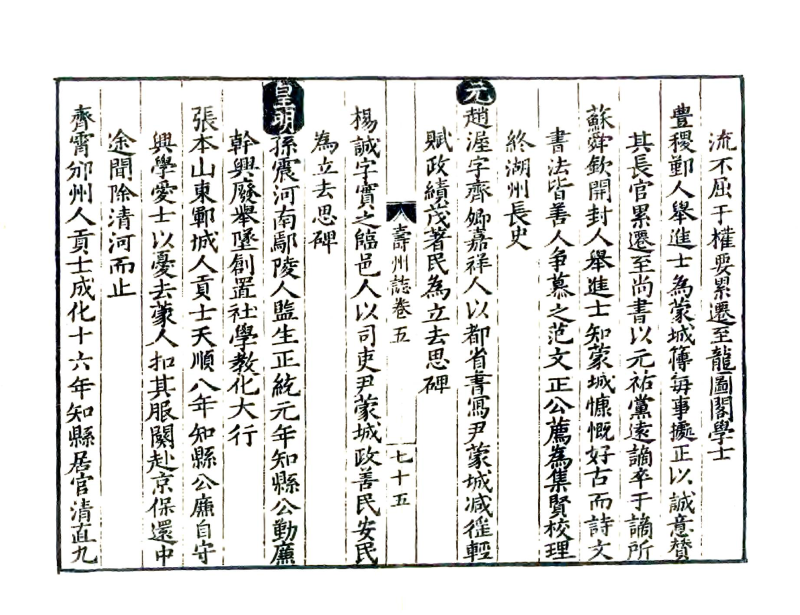 流不屈于權要累遷至龍圖閣學士
豊稷鄞人舉進士為蒙城簿每事處正以誠意贊
其長官累遷至尚書以元祐黨遠謫卒于謫所
蘇舜欽開封人舉進士知蒙城慷慨好古而詩文
書法皆善人爭慕之范文正公薦為集賢校理
終湖州長史
元趙渥字齊卿嘉祥人以都省書寫尹蒙城减徭輕
賦政績茂著民為立去思碑
壽州誌卷五
七十五
楊誠字實之臨邑人以司吏尹蒙城政善民安民
為立去思碑
皇明孫震河南鄢陵人監生正統元年知縣公勤廉
幹興廢舉墜創置社學教化大行
張本山東鄆城人貢士天順八年知縣公廉自守
興學愛士以憂去蒙人扣其服闋赴京保還中
途聞除清河而止
齊霄邠州人貢士成化十六年知縣居官清直九